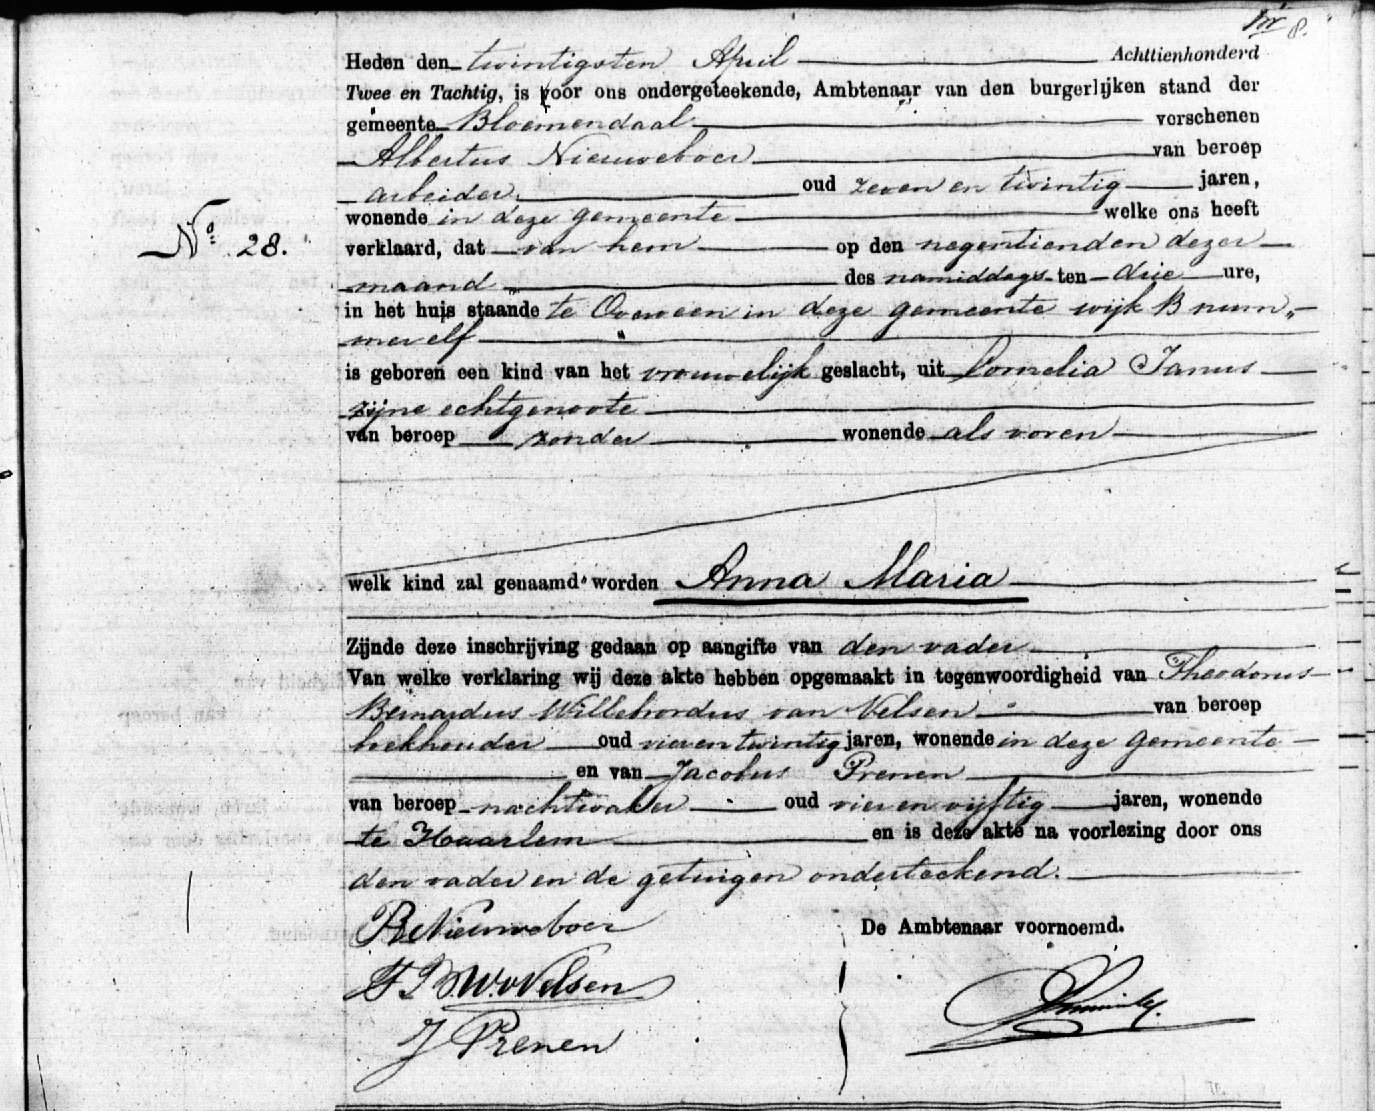 8.
Heden den twintigsten April Achttienhonderd
Twee en Tachtig, is voor ons ondergeteekende, Ambtenaar van den burgerlijken stand der
gemeente Bloemendaal verschenen
Albertus Nieuweboer van beroep
arbeider oud zeven en twintig jaren,
wonende in deze gemeente welke ons heeft
No. 28.
verklaard, dat van hem op den negentienden dezer
maand des namiddags ten drie ure,
in het huis staande te Overveen in deze gemeente wijk B num„
mer elf
is geboren een kind van het vrouwelijk geslacht, uit Cornelia Janus
zijne echtgenoote
van beroep zonder wonende als voren
welk kind zal genaamd worden Anna Maria
Zijnde deze inschrijving gedaan op aangifte van den vader
Van welke verklaring wij deze akte hebben opgemaakt in tegenwoordigheid van Theodorus
Bernardus Willebordus van Velsen van beroep
boekhouder oud vier en twintig jaren, wonende in deze gemeente
en van Jacobus Prenen
van beroep nachtwaker oud vier en vijftig jaren, wonende
te Haarlem en is deze akte na voorlezing door ons
den vader en de getuigen onderteekend.
Nieuweboer
De Ambtenaar voornoemd.
W. v Velsen
J Prenen